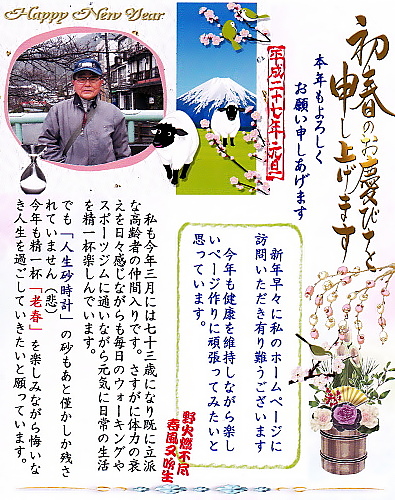 Happy New Year
初春のお慶びを
申し上げます
本年もよろしく
お願い申しあげます
平成二十七年元旦
新年早々に私のホームページに
訪問いただき有り難うございます
今年も健康を維持しながら楽し
いページ作りに頑張ってみたいと
思っています。
野火燃不尽
春風又吹生
私も今年三月には七十三歳になり既に立派
な高齢者の仲間入りです。さすがに体力の衰
えを日々感じながらも毎日のウォーキングや
スポーツジムに通いながら元気に日常の生活
を精一杯楽しんでいます。
でも「人生砂時計」の砂もあと僅かしか残さ
れていません(悲)
今年も精一杯「老春」を楽しみながら悔いな
き人生を過ごしていきたいと願っています。